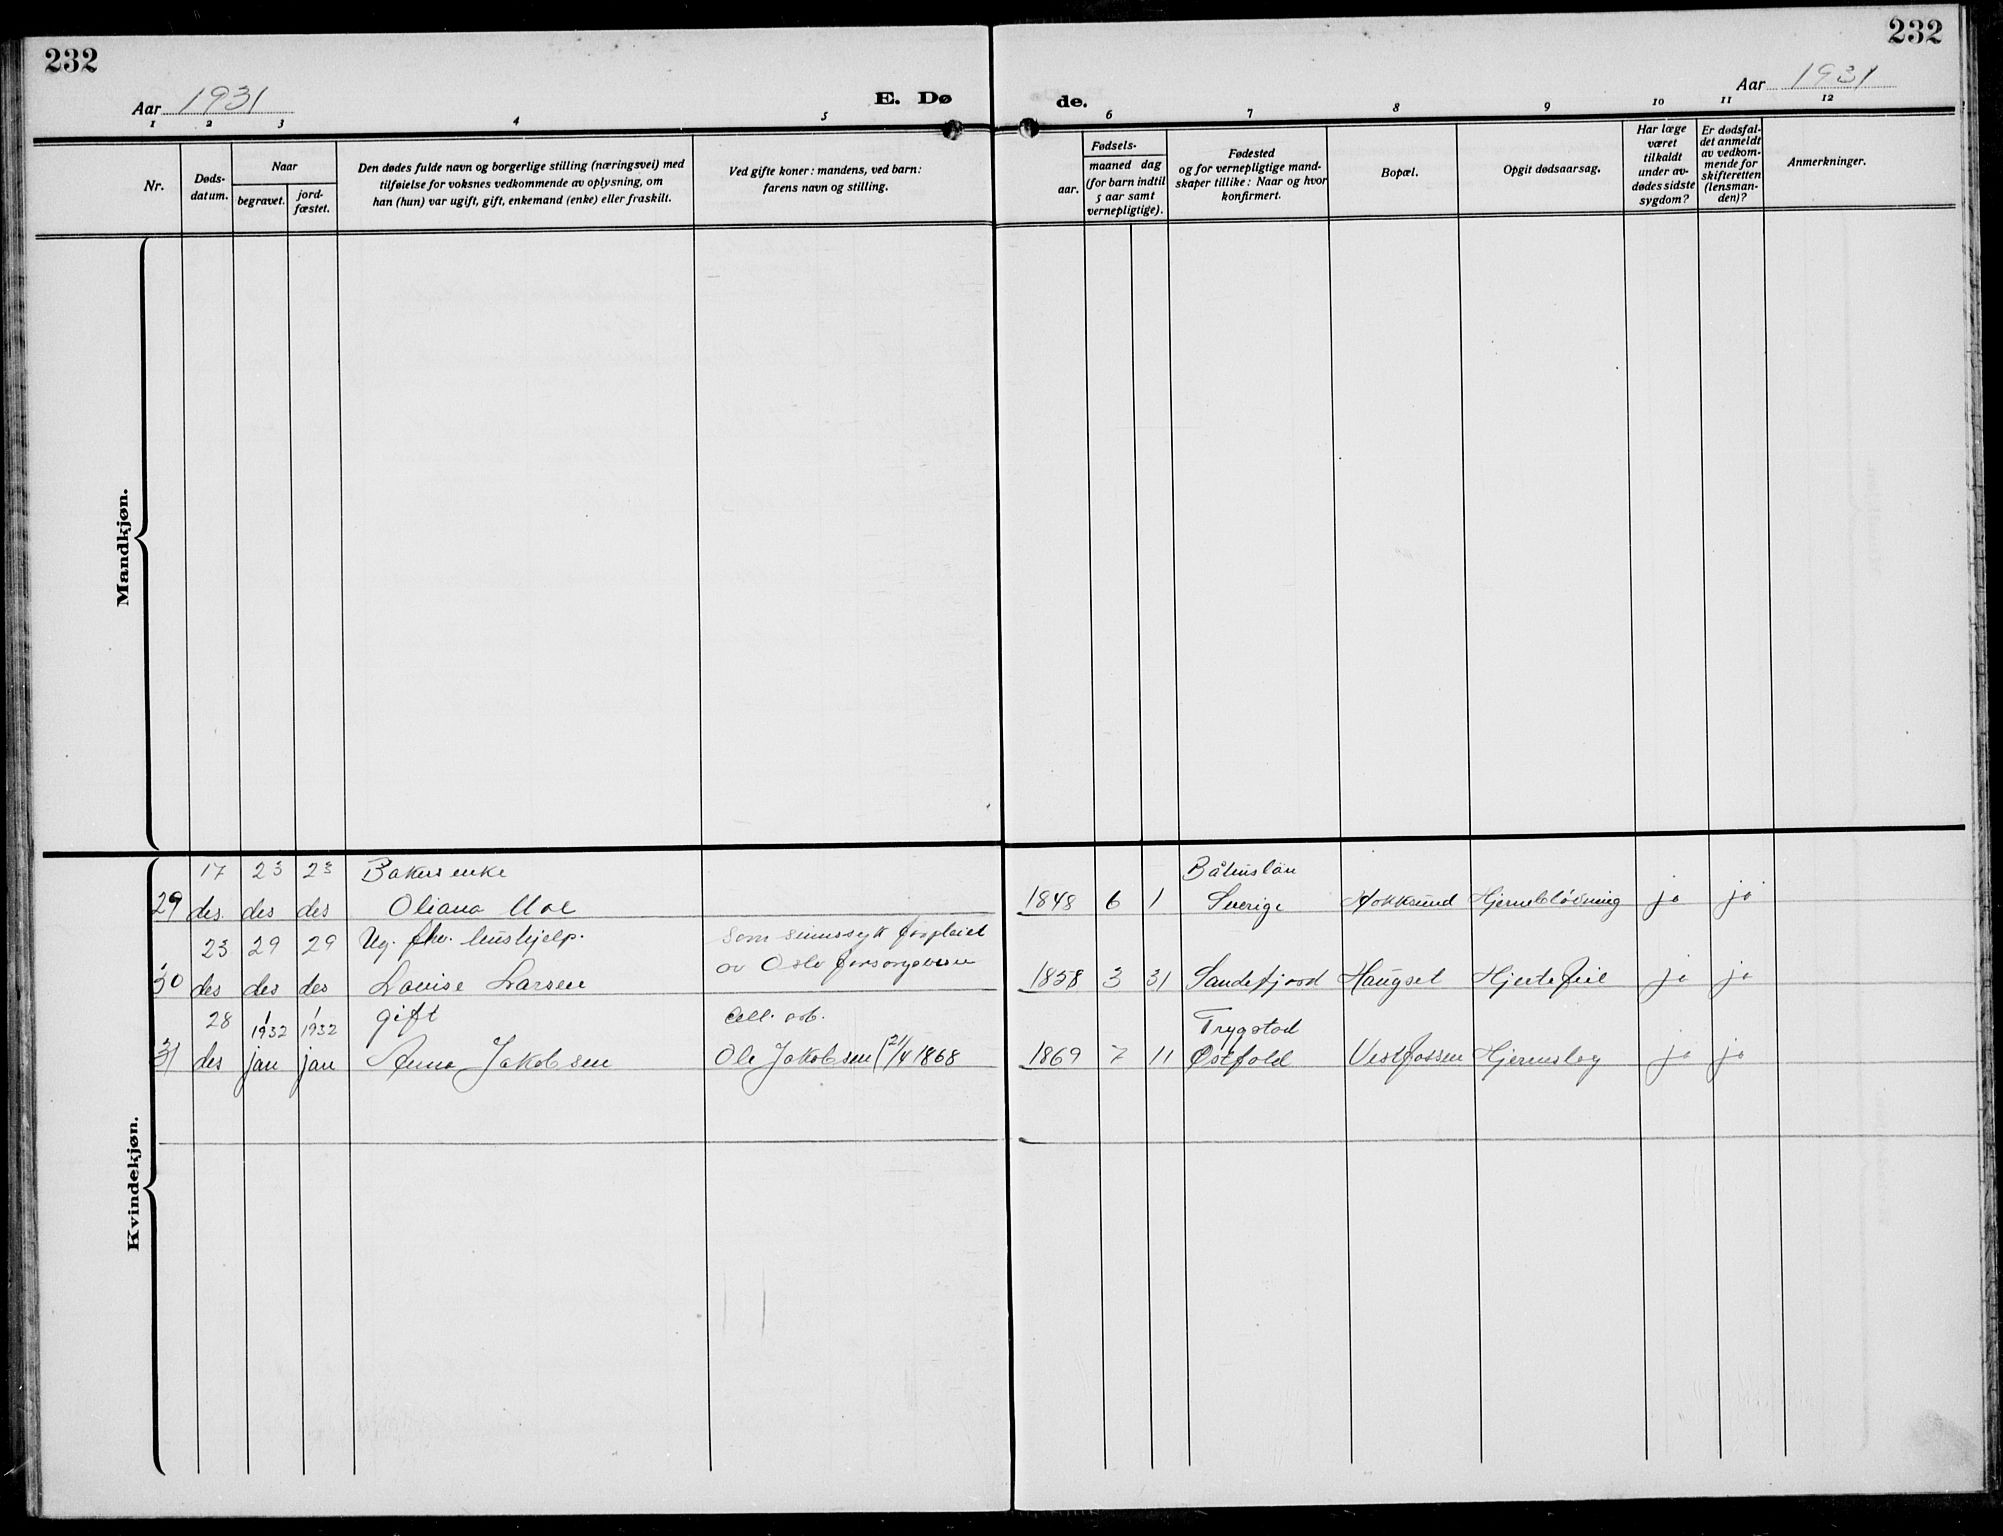 232
232
Aar 1931
E. Dø
de.
Aar 1931
1 2 3 4 5 6 7 8 9 10 11 12
Nr.
Døds-
datum.
Naar
begravet.
jord-
fæstet.
Den dødes fulde navn og borgerlige stilling (næringsvei) med
tilføielse for voksnes vedkommende av oplysning, om
han (hun) var ugift, gift, enkemand (enke) eller fraskilt.
Ved gifte koner: mandens, ved barn:
farens navn og stilling.
Fødsels-
aar.
maaned dag
(for barn indtil
5 aar samt
vernepligtige).
Fødested
og for vernepligtige mand-
skaper tillike: Naar og hvor
konfirmert.
Bopæl.
Opgit dødsaarsag.
Har læge
været
tilkaldt
under av-
dødes sidste
sygdom?
Er dødsfal-
det anmeldt
av vedkom-
mende for
skifteretten
(lensman-
den)?
Anmerkninger.
Mandkjøn.
Kvindekjøn.
17 23 23 Bakers enke Båhuslän
29 des. des des Oliana Moe 1848 6 1 Sverige Hokksund Hjerneblødning ja ja
23 29 29 Ug. fhv. hushjelp. som sinnssyk forpleiet
av Oslo forsorgsvesen
30 des des des Lovise Larsen 1858 3 31 Sandefjord Haugset Hjertefeil ja ja
28 1/1932 1/1932 gift Cell. arb. Trygstad
31 des jan jan Anna Jakobsen Ole Jakobsen (21/4 1868 1869 7 11 Østfold Vestfossen Hjerneslag ja ja